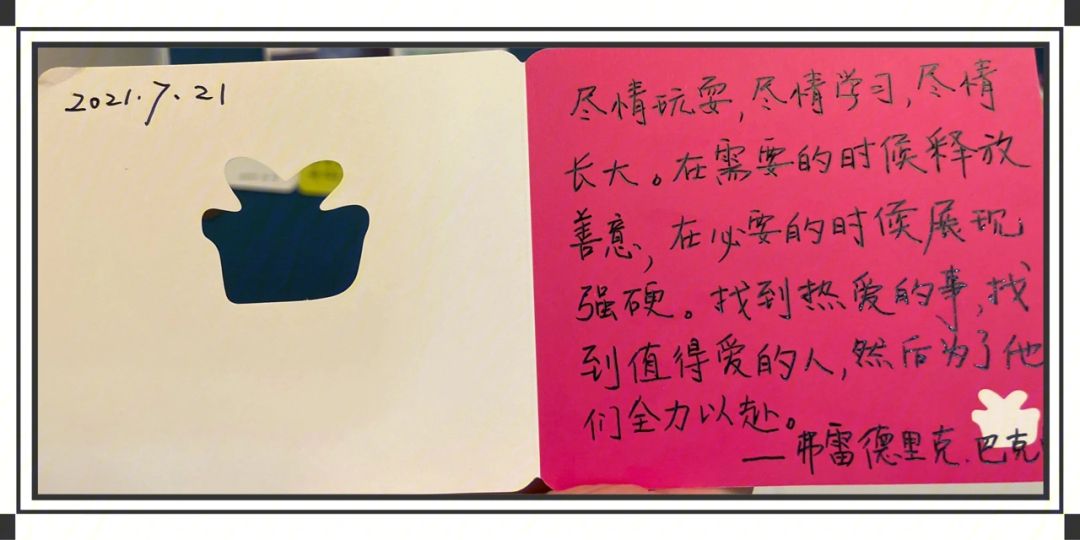 2021.7.21
尽情玩耍,尽情学习,尽情
长大。在需要的时候释放
善意,在必要的时候展现
强硬。找到热爱的事,找
到值得爱的人,然后为了他
们全力以赴。
——弗雷德里克.巴克